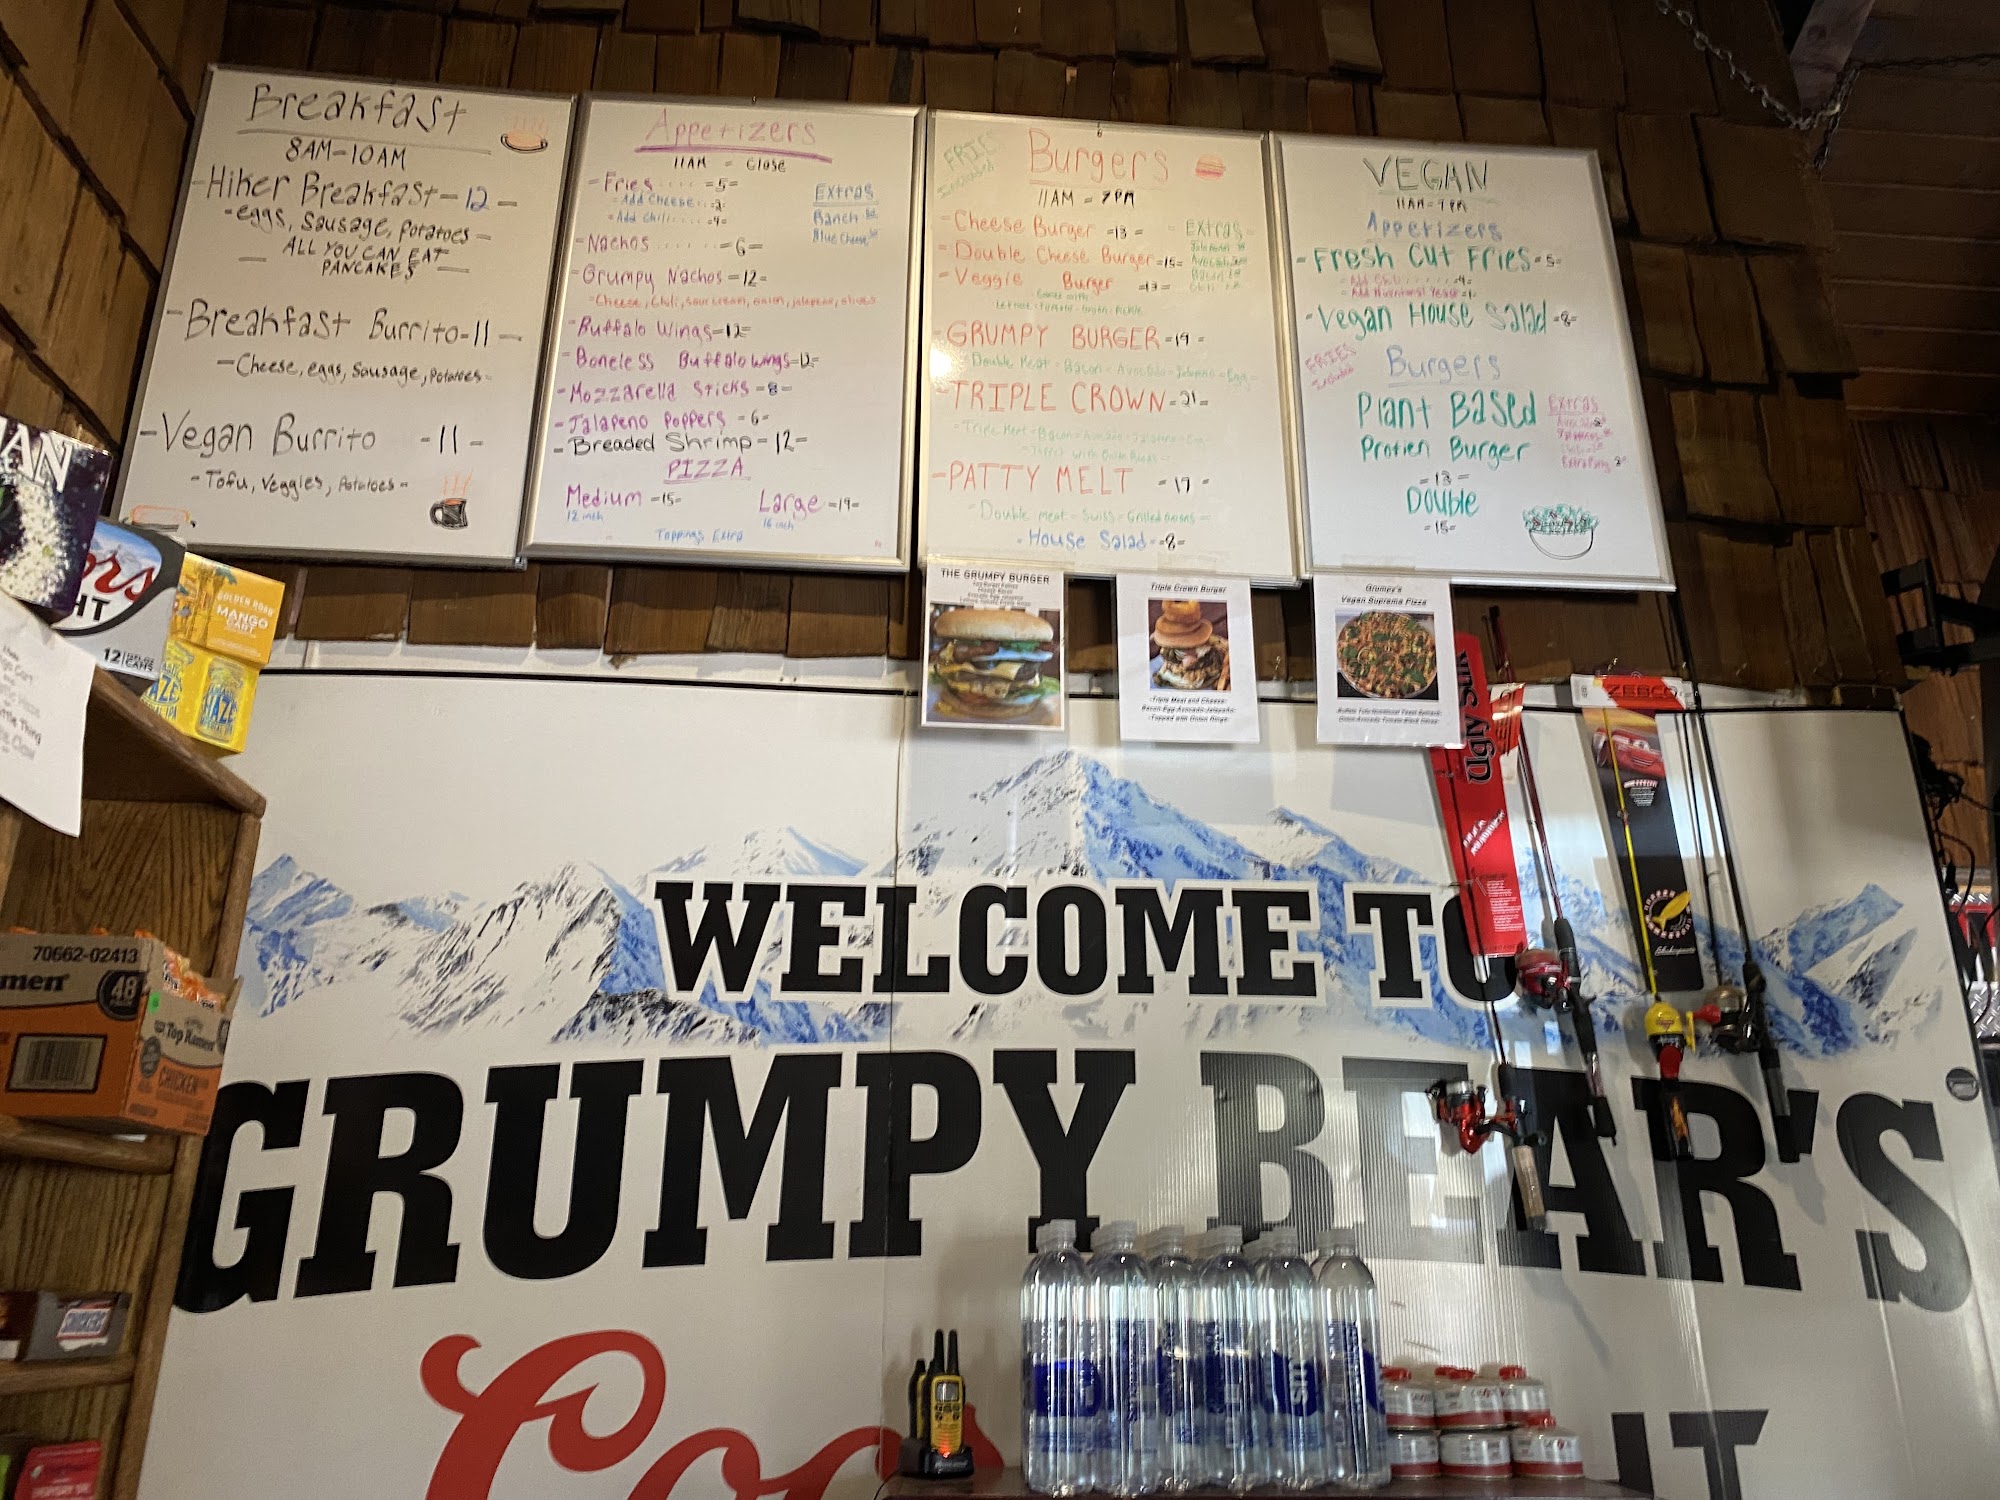 Breakfast
8AM-10AM
-Hiker Breakfast-12-
-eggs, sausage, potatoes-
ALL YOU CAN EAT
PANCAKES
-Breakfast Burrito-11-
-Cheese, eggs, sausage, potatoes-
-Vegan Burrito -11-
-Tofu, veggies, potatoes-
Appetizers
11AM - Close
-Fries.... -5-
-Add Cheese...2-
-Add Chili...-4-
Extras
Ranch
Blue Cheese
-Nachos...... -6-
-Grumpy Nachos-12-
-Cheese, Chili, sour cream, onion, jalapeno, olives
-Buffalo Wings-12-
-Boneless Buffalo wings-12-
-Mozzarella Sticks-8-
-Jalapeno Poppers-6-
-Breaded Shrimp-12-
PIZZA
Medium -15- Large-19-
12 inch 16 inch
Toppings Extra
FRIES
Included
Burgers
11AM - 7PM
-Cheese Burger -13-
-Double Cheese Burger-15-
-Veggie Burger -13-
Extras
Comes with
Lettuce-Tomato-Onion-Pickle
-GRUMPY BURGER-19-
-Double Meat-Bacon-Avocado-Jalapeno-Egg-
-TRIPLE CROWN-21-
-Triple Meat-Bacon-Avocado-Jalapeno-Egg-
-PATTY MELT -17-
-Double meat-Swiss-Grilled onions-
-House Salad-8-
VEGAN
11AM-7PM
Appetizers
-Fresh Cut Fries-5-
-Add Chili......-4-
-Add Nutritional Yeast-1-
-Vegan House Salad-8-
FRIES
Included
Burgers
Plant Based
Protien Burger
-13-
Double
-15-
Extras
Extra Patty
THE GRUMPY BURGER
Triple Crown Burger
-Triple Meat and Cheese-
Bacon-Egg-Avocado-Jalapeño-
-Topped with Onion Rings-
Grumpy's
Vegan Supreme Pizza
AN
ors
HT
12
CANS
GOLDEN ROAD
MANGO
CART
HAZE
Ugly Stik
ZEBCO
WELCOME TO
GRUMPY BEAR'S
Coo
HT
70662-02413
men
48
Top Ramen
CHICKEN
SNICKERS
smart